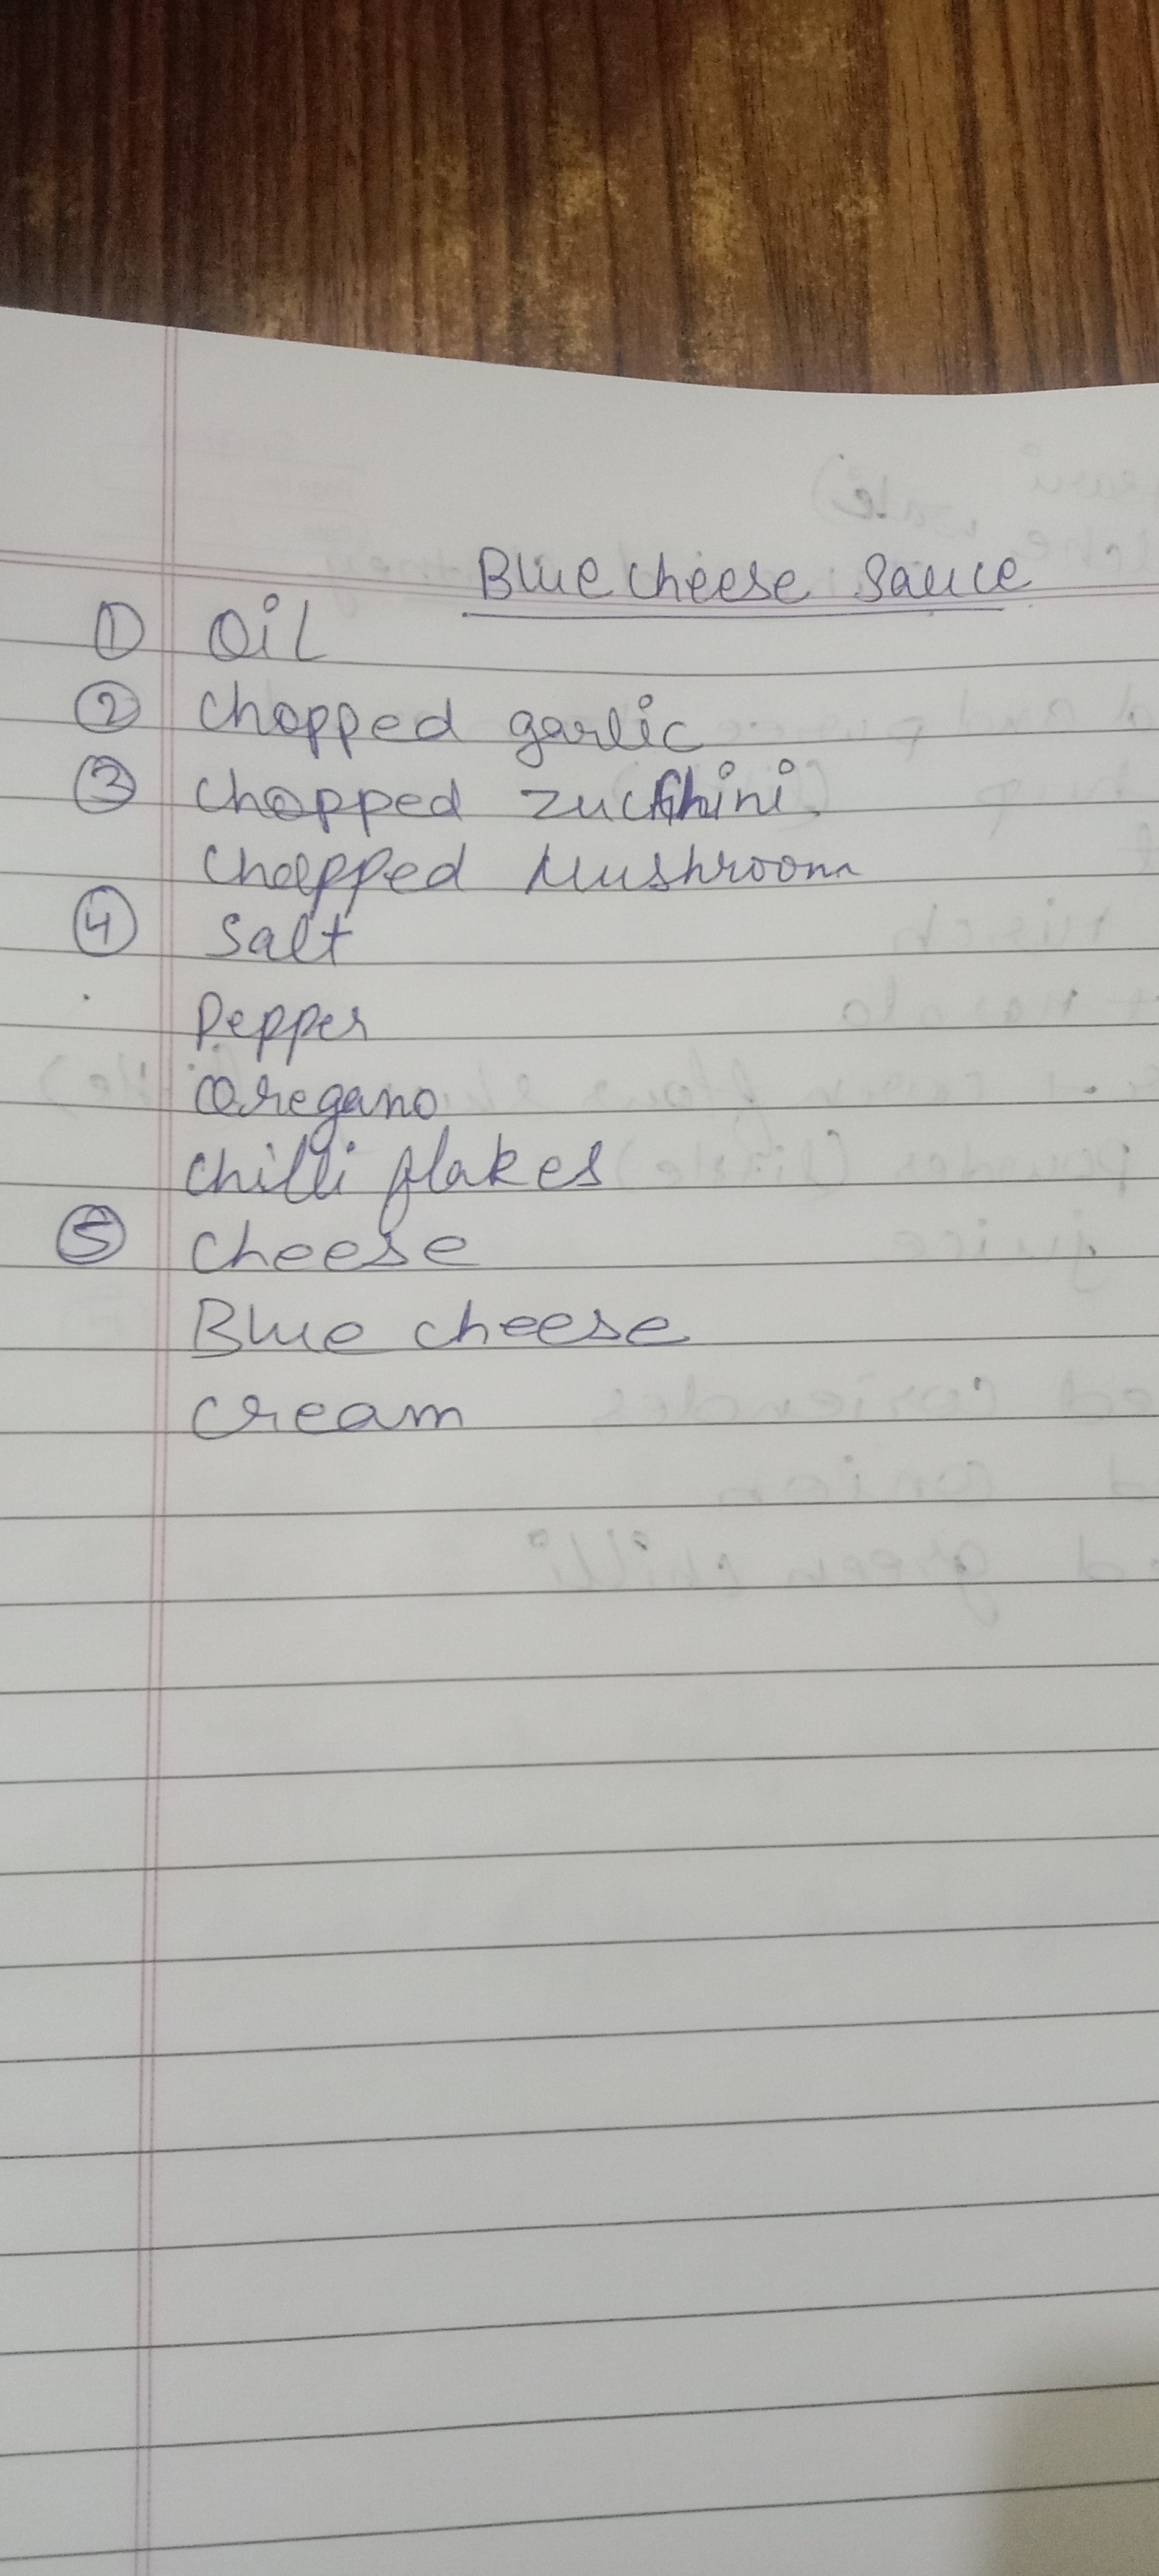 Blue cheese sauce
① Oil
② chopped garlic
③ chopped zucchini
chopped Mushroom
④ salt
Pepper
Oregano
chilli flakes
⑤ cheese
Blue cheese
cream